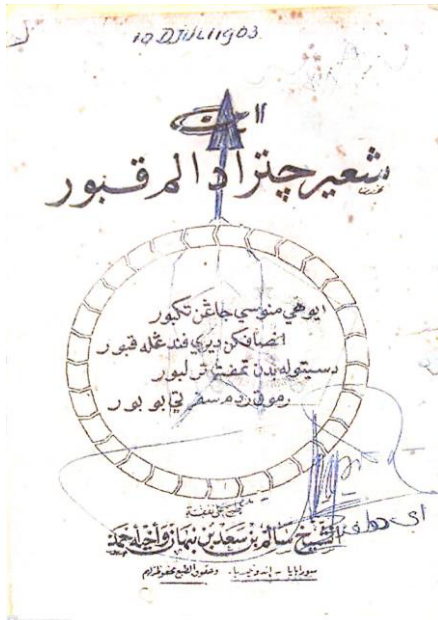 10 DJULI 1983
اين
شعير چترا دالم قبور
ايوهي منوسي جاڠن تكبور
انصافكن ديري فد عمله قبور
دسيتوله بدن تمفت ترلبور
رموق ردم سفرتي بوبور
طبع على نفقة
الشيخ سالم بن سعد بن نبهان وأخيه أحمد
سورابايا - إندونيسيا. وحقوق الطبع محفوظة لهم